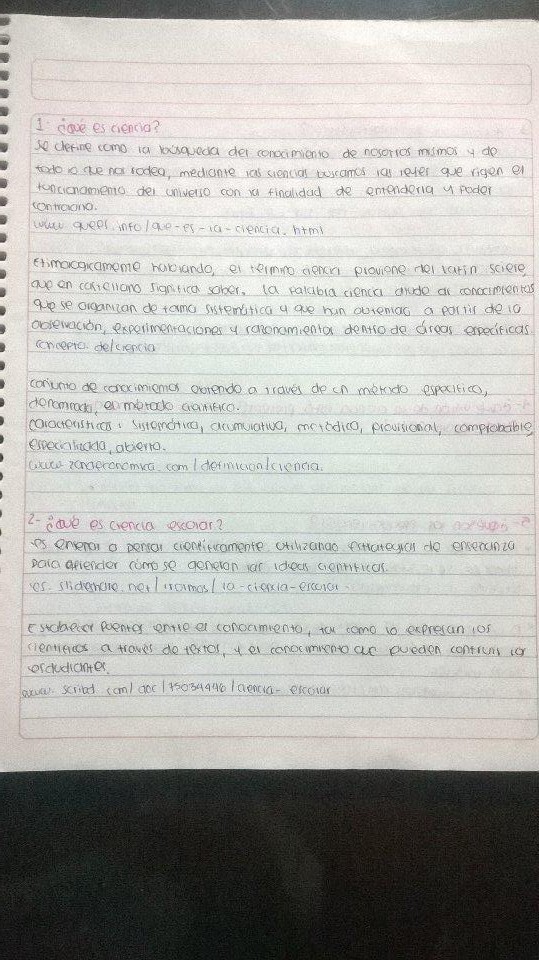 1- ¿Qué es ciencia?
Se define como la búsqueda del conocimiento de nosotros mismos y de
todo lo que nos rodea, mediante las ciencias buscamos las leyes que rigen el
funcionamiento del universo con la finalidad de entenderla y poder
controlarla.
www.quees.info/que-es-la-ciencia.html
Etimologicamente hablando, el termino ciencia proviene del latín sciere,
que en castellano significa saber. La palabra ciencia alude al conocimientos
que se organizan de forma sistemática y que han obtenido a partir de la
observación, experimentaciones y razonamientos dentro de áreas específicas
concepto.de/ciencia
conjunto de conocimientos obtenido a través de un método específico,
denominado, el método científico.
características: sistemática, acumulativa, metódico, provisional, comprobable,
especializada, abierto.
www.zonaeconomica.com/definicion/ciencia.
2- ¿Qué es ciencia escolar?
es enseñar a pensar científicamente utilizando estrategias de enseñanza
para aprender cómo se generan las ideas científicas.
es. slideshare.net/ /la-ciencia-escolar
Establecer puentes entre el conocimiento, tal como lo expresan los
científicos a través de textos, y el conocimiento que pueden construir los
estudiantes.
www.scribd.com/doc/75034446/ciencia-escolar